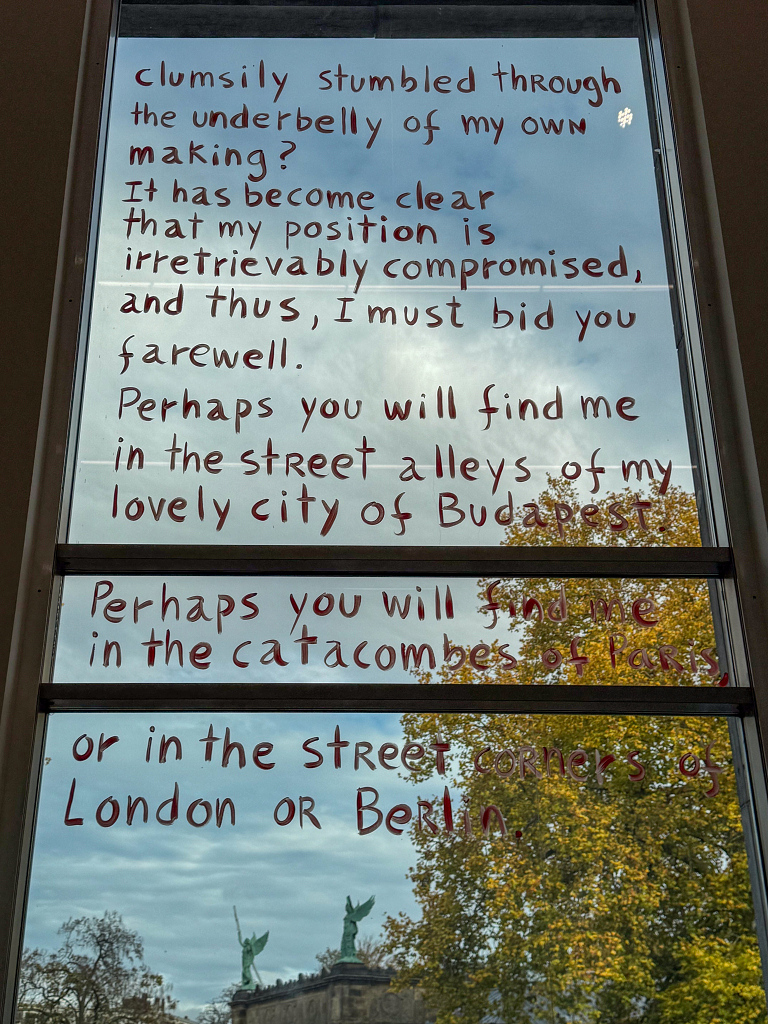 clumsily stumbled through
the underbelly of my own
making?
It has become clear
that my position is
irretrievably compromised,
and thus, I must bid you
farewell.
Perhaps you will find me
in the street alleys of my
lovely city of Budapest.
Perhaps you will find me
in the catacombes of Paris,
or in the street corners of
London or Berlin.